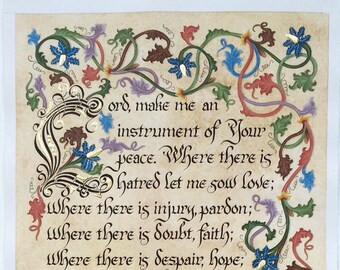 Lord, make me an
instrument of Your
peace. Where there is
hatred let me sow love;
Where there is injury, pardon;
Where there is doubt, faith;
Where there is despair, hope;